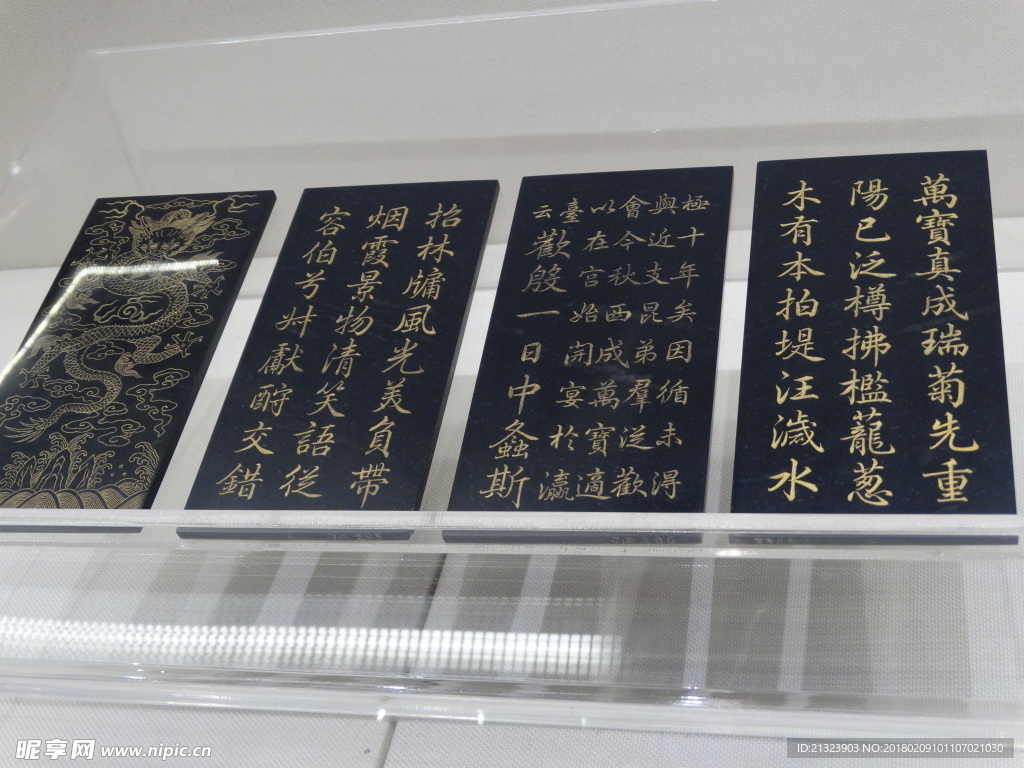 萬寶真成瑞菊先重
陽已泛樽拂檻蘢葱
木有本拍堤汪濊水
極十年矣因循未得
與近支昆弟羣從歡
會今秋西成萬寶適
以在宮始開宴於瀛
臺
云
歡殷一日中螽斯
招林牗風光美負帶
烟霞景物清笑語從
容伯兮叔獻酧交錯
昵享网 www.nipic.cn
ID:21323903 NO:20180209101107021030